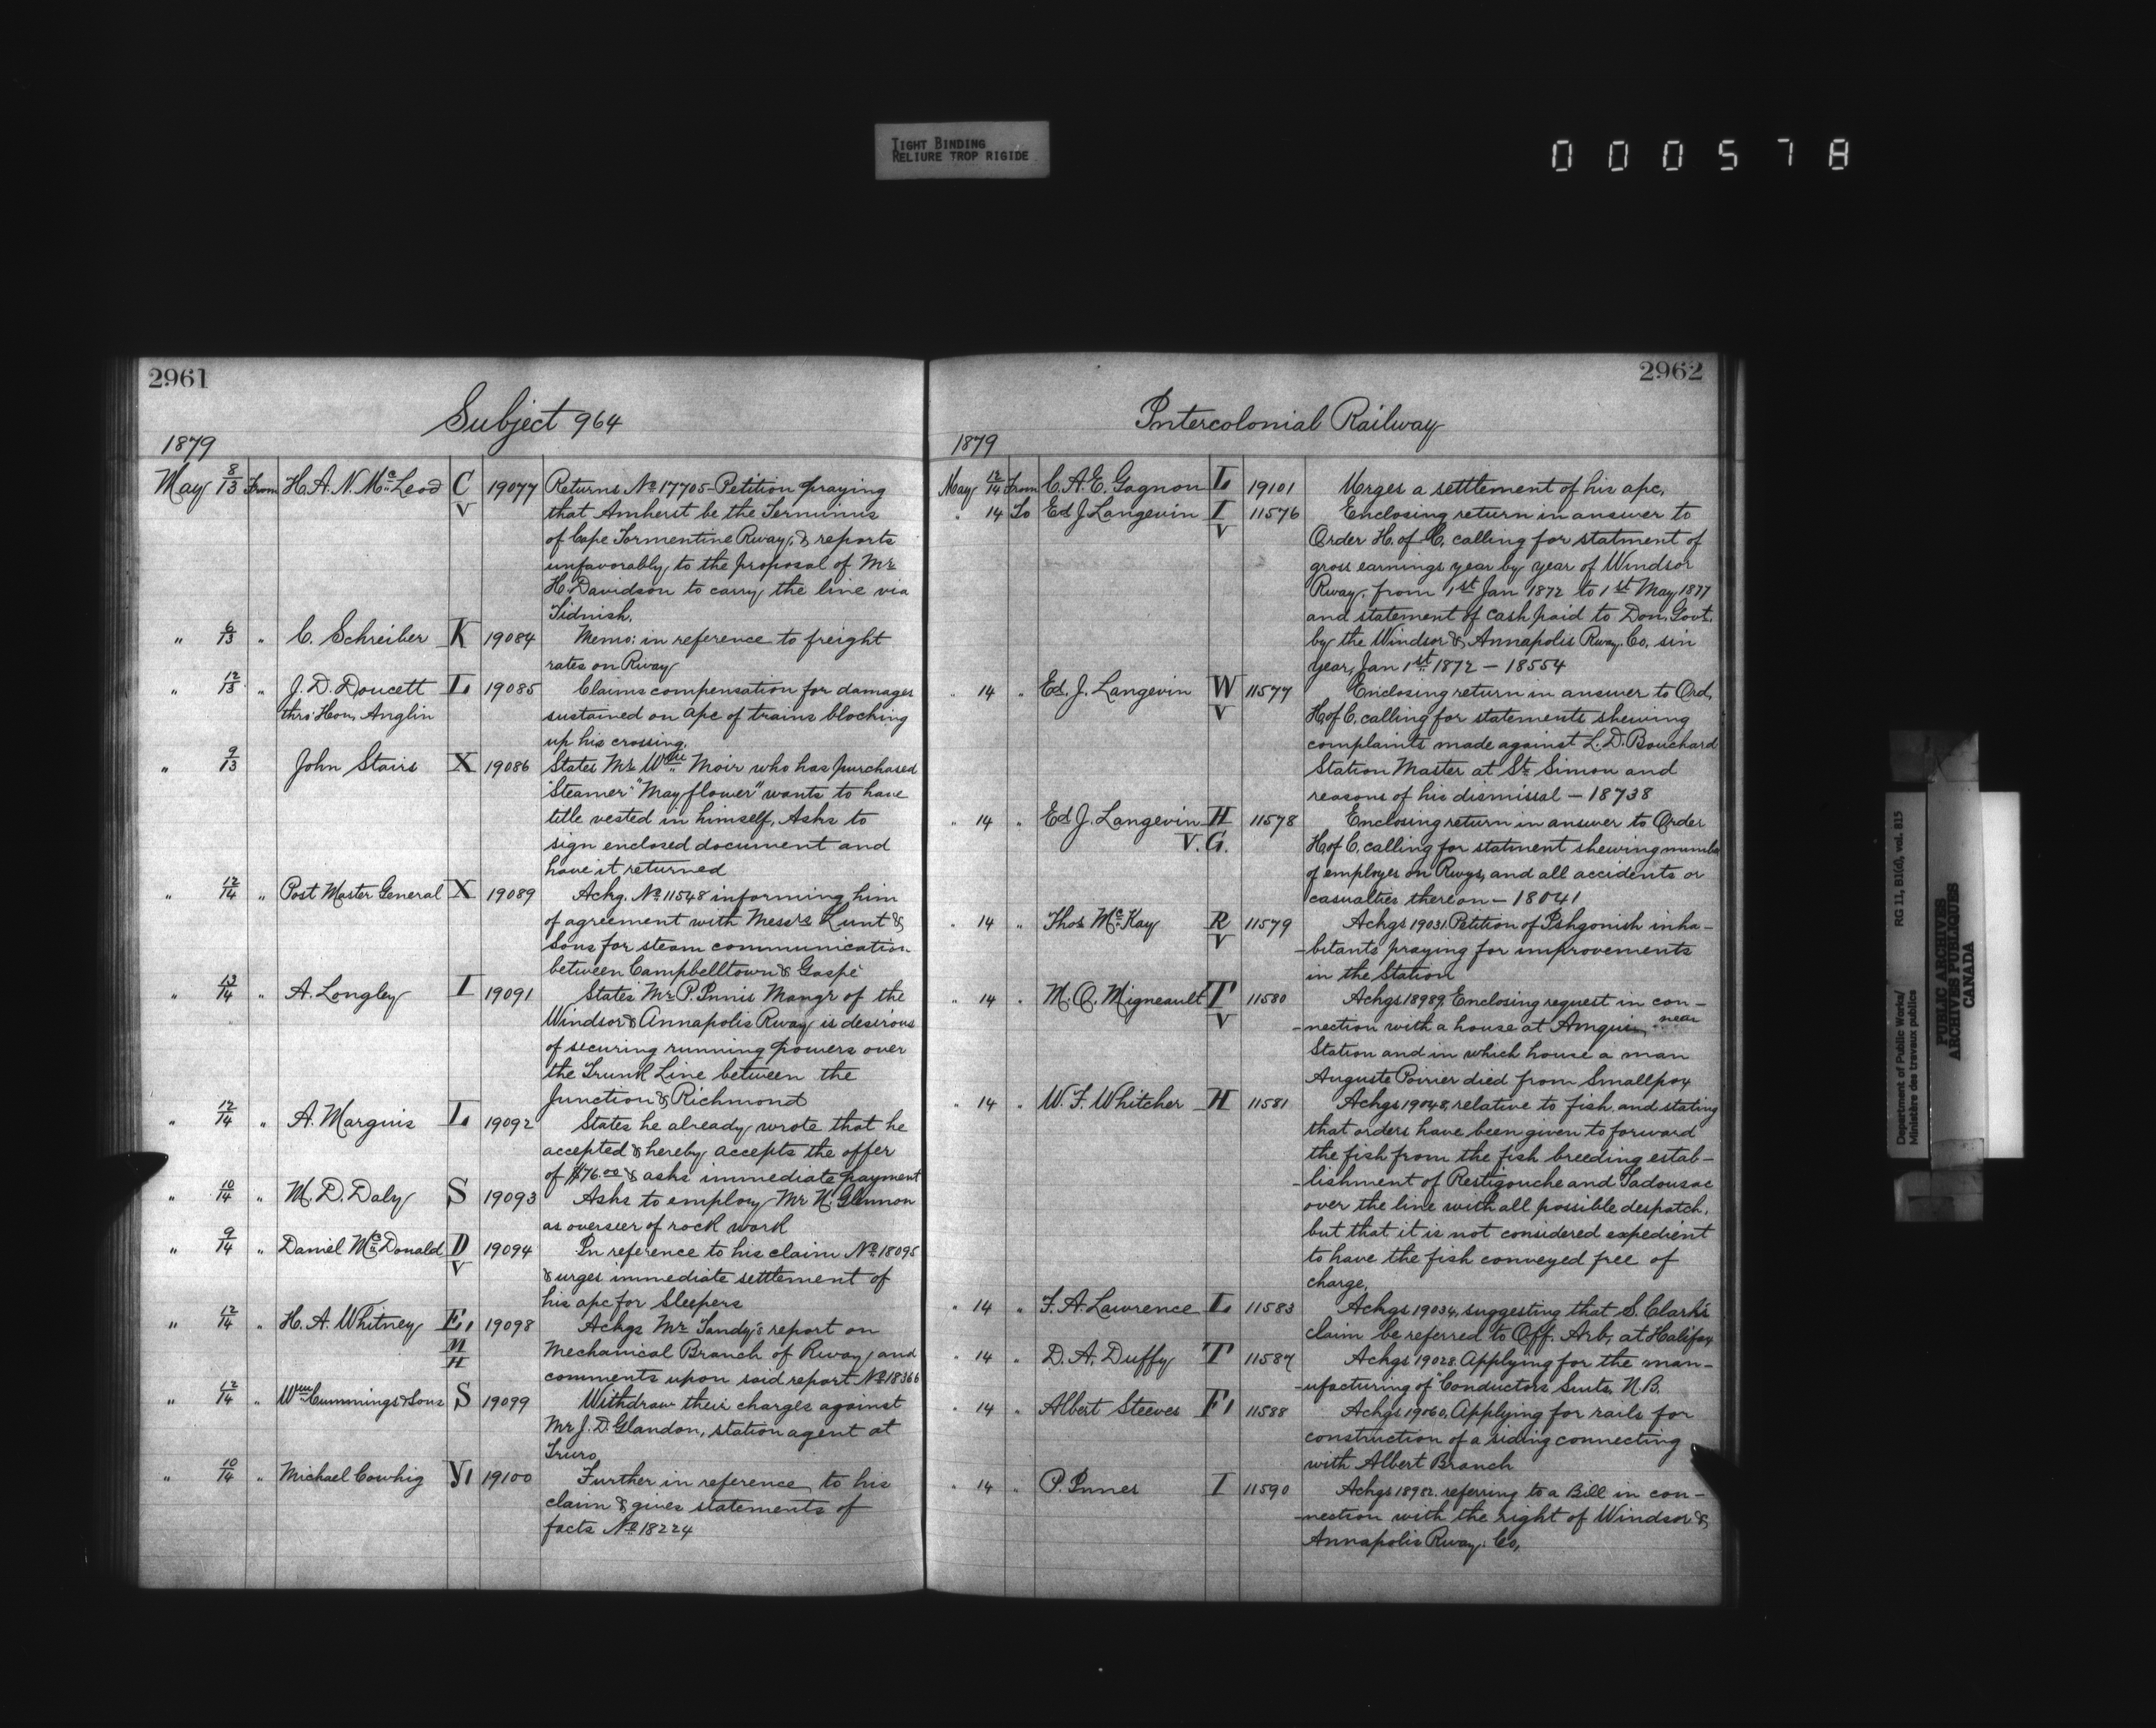 TIGHT BINDING
RELIURE TROP RIGIDE
000578
2961
Subject 964
1879
May 8/13 From H. A. N. McLeod C V 19077 Returns No 17705 - Petition praying
that Amherst be the Terminus
of Cape Tormentine Rway, & reports
unfavorably to the proposal of Mr
H. Davidson to carry the line via
Tidnish.
" 6/13 " C. Schreiber K 19084 Memo: in reference to freight
rates on Rway
" 12/13 " J. D. Doucett L 19085 Claims compensation for damages
thro' Hon. Anglin sustained on apc of trains blocking
up his crossing.
" 9/13 John Stairs X 19086 States Mr Wm Moir who has purchased
Steamer "May flower" wants to have
title vested in himself, Asks to
sign enclosed document and
have it returned
" 12/14 " Post Master General X 19089 Ackg. No 11548 informing him
of agreement with Messrs Lunt &
Sons for steam communication
between Campbelltown & Gaspé
" 13/14 " A. Longley I 19091 States Mr P. Innis Mangr of the
Windsor & Annapolis Rway is desirous
of securing running powers over
the Trunk Line between the
Junction & Richmond
" 12/14 " A. Marquis L 19092 States he already wrote that he
accepted & hereby accepts the offer
of $76.00 & asks immediate payment
" 10/14 " M. D. Daly S 19093 Asks to employ Mr N. Glennon
as overseer of rock work
" 9/14 " Daniel McDonald D V 19094 In reference to his claim No 18095
& urges immediate settlement of
his apc for Sleepers
" 12/14 " H. A. Whitney E, M H 19098 Ackgs Mr Tandy's report on
Mechanical Branch of Rway and
comments upon said report No 18366
" 12/14 " Wm Cummings & Sons S 19099 Withdraw their charges against
Mr J. D. Glandon, station agent at
Truro
" 10/14 " Michael Cowhig Y, 19100 Further in reference to his
claim & gives statements of
facts No 18224
2962
Intercolonial Railway
1879
May 12/14 From C. A. E. Gagnon L 19101 Urges a setttlement of his apc,
" 14 To Ed J. Langevin I V 11576 Enclosing return in answer to
Order H. of C. calling for statment of
gross earnings year by year of Windsor
Rway. from 1st Jan 1872 to 1st May 1877
and statement of cash paid to Don. Govt.
by the Windsor & Annapolis Rway. Co. sin
year, Jan 1st 1872 - 18554
" 14 " Ed. J. Langevin W V 11577 Enclosing return in answer to Ord,
H of C. calling for statements shewing
complaints made against L. D. Bouchard
Station Master at St Simon and
reasons of his dismissal - 18738
" 14 " Ed J. Langevin H V. G. 11578 Enclosing return in answer to Order
H of C. calling for statment shewing numbe
of employes on Rwys, and all accidents or
casualties thereon - 18041
" 14 " Thos McKay R V 11579 Ackgs 19031. Petition of Ishgonish inha-
-bitants praying for improvements
in the Station
" 14 " M. Q. Migneault T V 11580 Ackgs 18989. Enclosing request in con-
-nection with a house at Amqui near
Station and in which house a man
Auguste Poirier died from Smallpox
" 14 " W. F. Whitcher H 11581 Ackgs 19048, relative to fish, and stating
that orders have been given to forward
the fish from the fish breeding estab-
-lishment of Restigouche and Tadousac
over the line with all possible despatch,
but that it is not considered expedient
to have the fish conveyed free of
charge,
" 14 " F. A. Lawrence L 11583 Ackgs 19034, suggesting that S. Clark's
claim be referred to Off. Arb, at Halifax
" 14 " D. A. Duffy T 11587 Ackgs 19028. Applying for the man-
-ufacturing of Conductors Suits, N.B.
" 14 " Albert Steeves F, 11588 Ackgs 19060. Applying for rails for
construction of a siding connecting
with Albert Branch
" 14 " P. Innes I 11590 Ackgs 18982. referring to a Bill in con-
-nection with the right of Windsor &
Annapolis Rway. Co,
Department of Public Works/ RG 11, B1(d), vol. 815
Ministère des travaux publics
PUBLIC ARCHIVES
ARCHIVES PUBLIQUES
CANADA